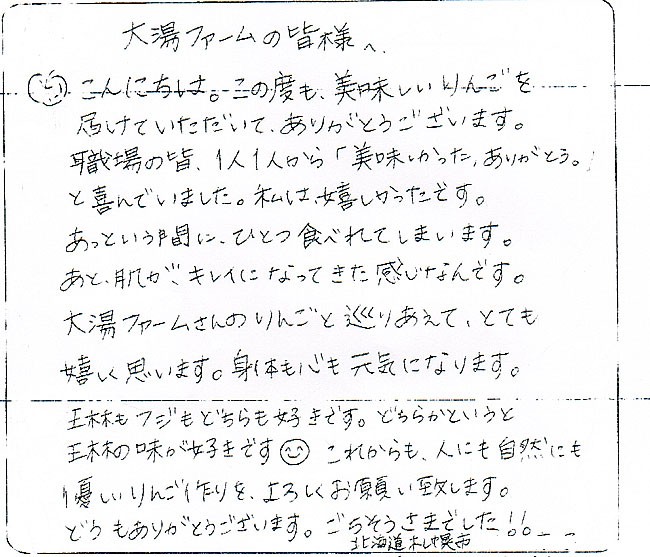 大湯ファームの皆様へ
こんにちは。この度も、美味しいりんごを
届けていただいて、ありがとうございます。
職場の皆、1人1人から「美味しかった,ありがとう。」
と喜んでいました。私は、嬉しかったです。
あっという間に、ひとつ食べれてしまいます。
あと、肌が、キレイになってきた感じなんです。
大湯ファームさんのりんごと巡りあえて、とても
嬉しく思います。身体も心も元気になります。
王林もフジもどちらも好きです。どちらかというと
王林の味が好きです これからも、人にも自然にも
優しいりんご作りを、よろしくお願い致します。
どうもありがとうございます。ごちそうさまでした!!
北海道札幌市